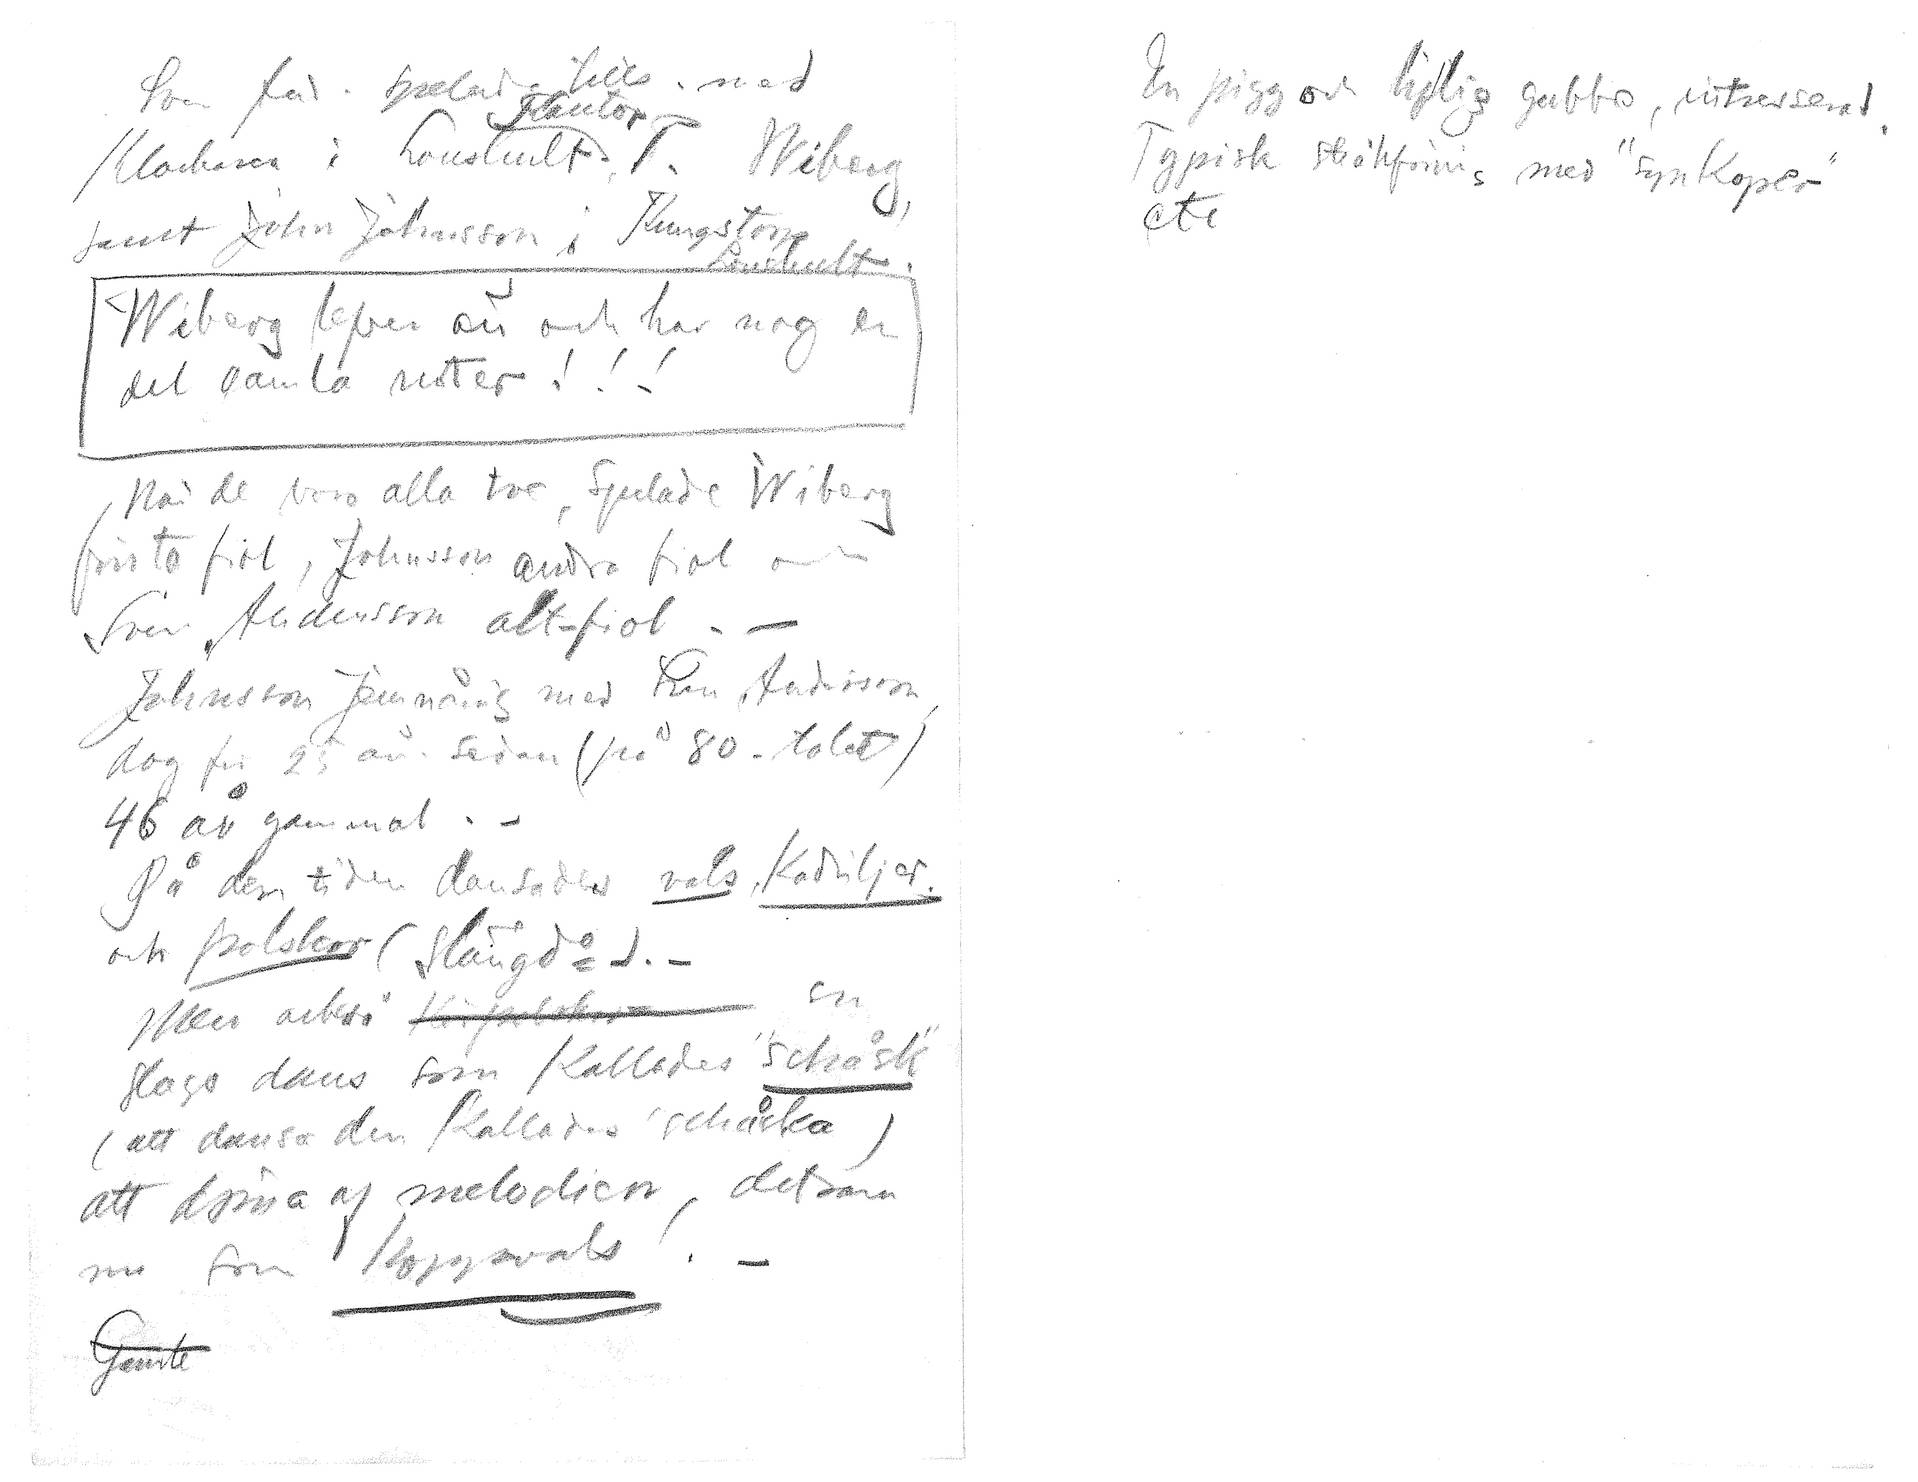 Sven And. spelade tills. med
Kantor
Klockaren i Lönshult, T. Wiberg,
samt John Johnsson i Kungstorp
Lönshult.
Wiberg lefver än och har nog en
del gamla noter!!!
När de voro alla tre, spelade Wiberg
första fiol, Johnsson andra fiol och
Sven Andersson alt-fiol. –
Johnsson jämnårig med Sven Andersson,
dog för 25 år sedan (på 80-talet)
46 år gammal. –
På den tiden dansades vals, Kadriljer.
och polskor (slängd°). –
Men också en
slags dans som kallades "schåsk"
(att dansa den kallades "schåska)
att döma af melodien, detsamma
nu som Hoppvals. –
Gamle
En pigg och liflig gubbe, intresserad.
Typisk stråkföring med "synkoper"
etc